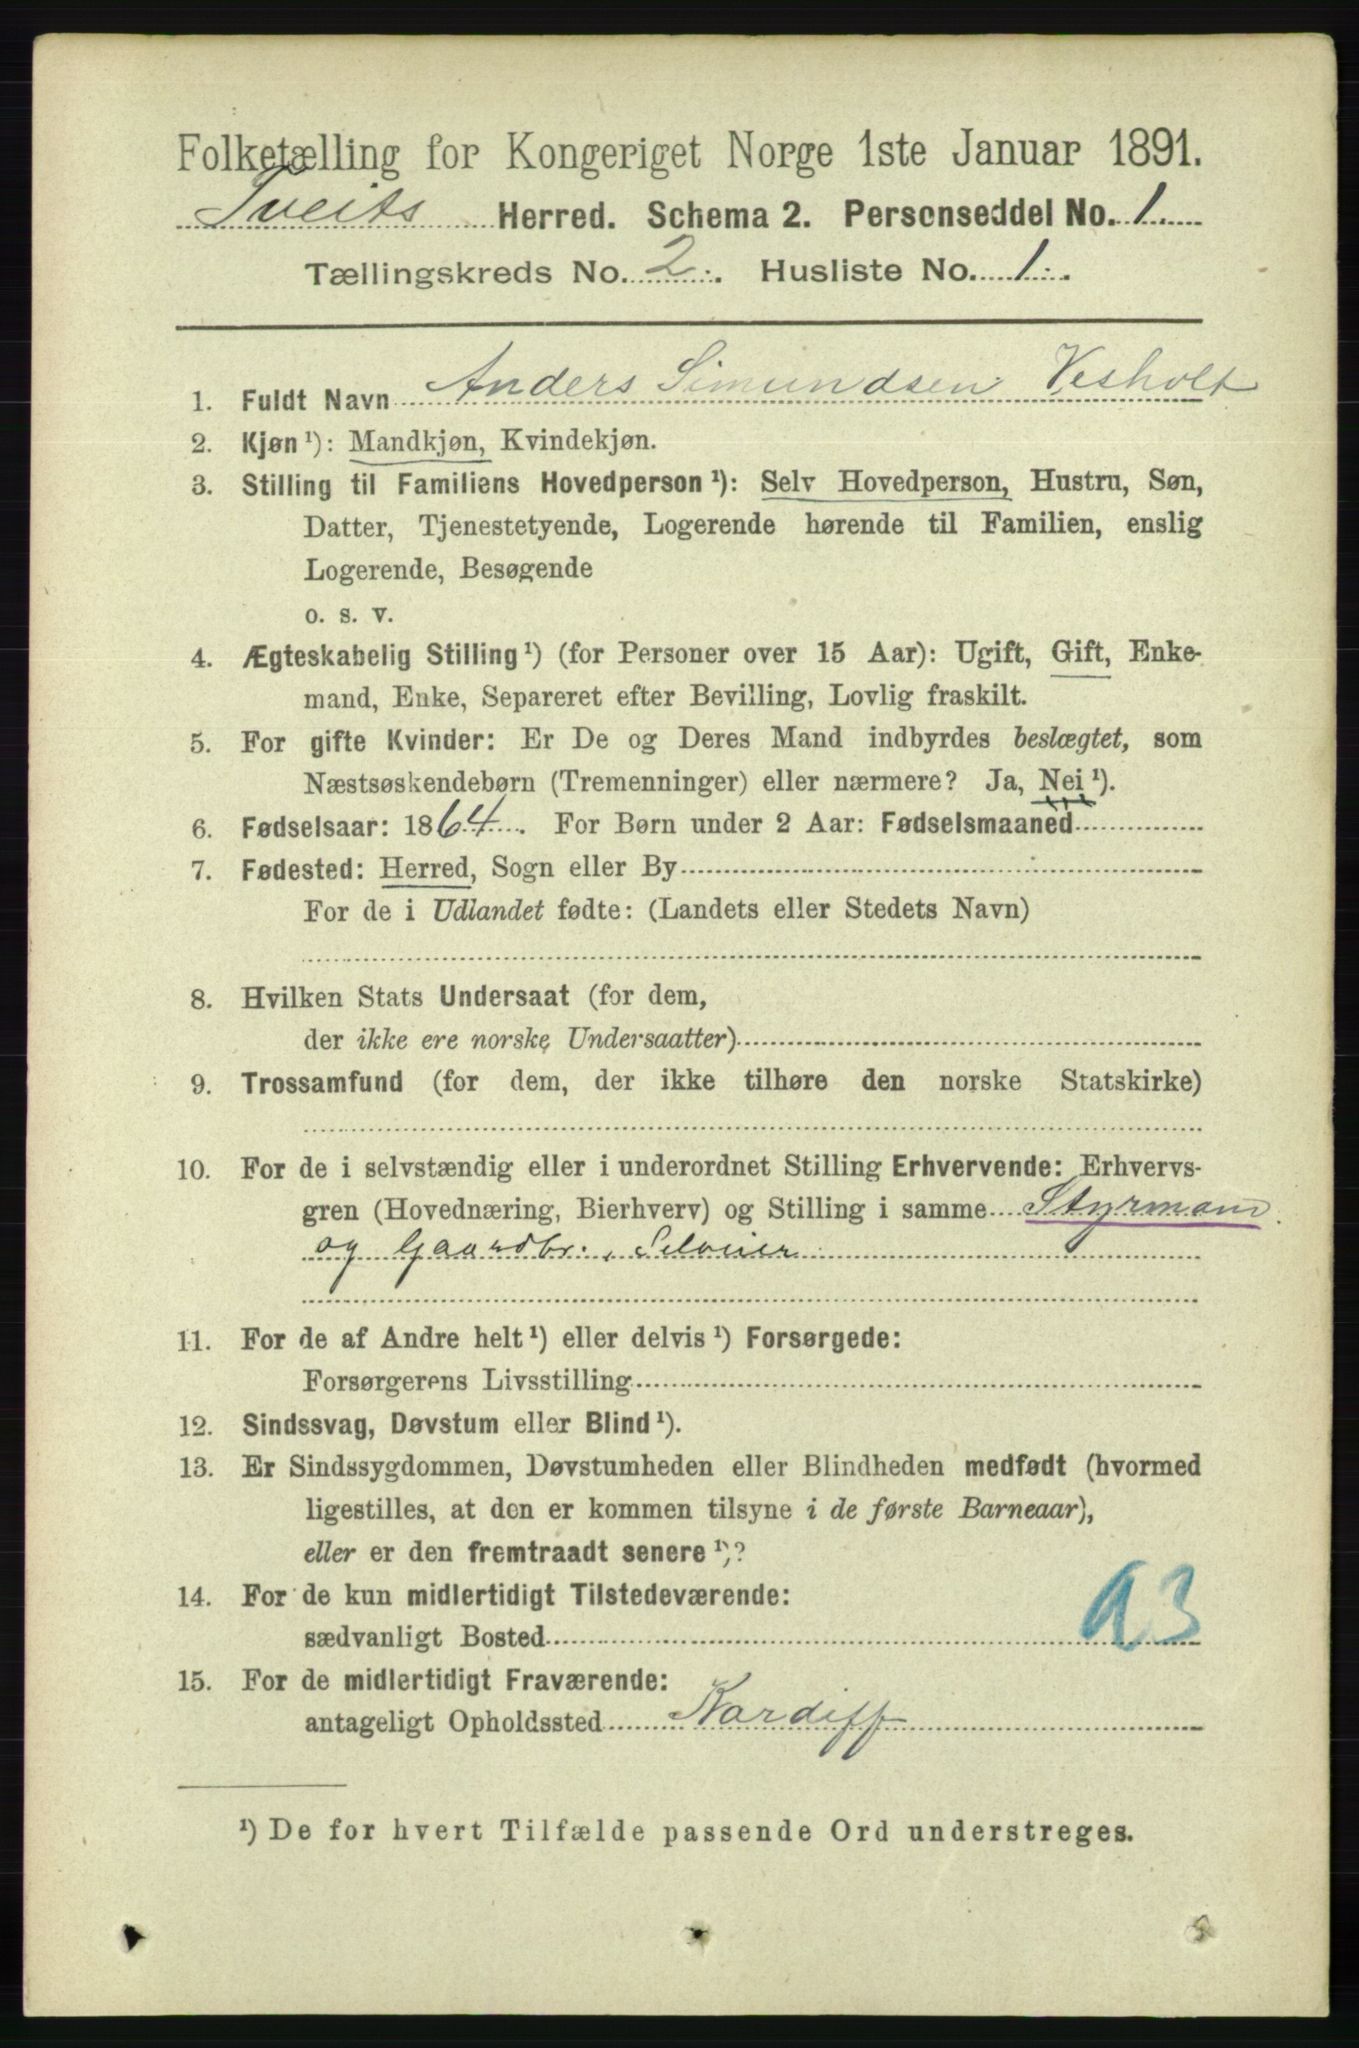 Folketælling for Kongeriget Norge 1ste Januar 1891.
Tveits Herred. Schema 2. Personseddel No. 1.
Tællingskreds No. 2. Husliste No. 1.
1. Fuldt Navn Anders Simundsen Vesholt
2. Kjøn ¹): Mandkjøn, Kvindekjøn.
3. Stilling til Familiens Hovedperson ¹): Selv Hovedperson, Hustru, Søn,
Datter, Tjenestetyende, Logerende hørende til Familien, enslig
Logerende, Besøgende
o. s. v.
4. Ægteskabelig Stilling ¹) (for Personer over 15 Aar): Ugift, Gift, Enke-
mand, Enke, Separeret efter Bevilling, Lovlig fraskilt.
5. For gifte Kvinder: Er De og Deres Mand indbyrdes beslægtet, som
Næstsøskendebørn (Tremenninger) eller nærmere? Ja, Nei ¹).
6. Fødselsaar: 1864. For Børn under 2 Aar: Fødselsmaaned
7. Fødested: Herred, Sogn eller By
For de i Udlandet fødte: (Landets eller Stedets Navn)
8. Hvilken Stats Undersaat (for dem,
der ikke ere norske Undersaatter)
9. Trossamfund (for dem, der ikke tilhøre den norske Statskirke)
10. For de i selvstændig eller i underordnet Stilling Erhvervende: Erhvervs-
gren (Hovednæring, Bierhverv) og Stilling i samme Styrmand
og Gaardbr., Selveier
11. For de af Andre helt ¹) eller delvis ¹) Forsørgede:
Forsørgerens Livsstilling
12. Sindssvag, Døvstum eller Blind ¹).
13. Er Sindssygdommen, Døvstumheden eller Blindheden medfødt (hvormed
ligestilles, at den er kommen tilsyne i de første Barneaar),
eller er den fremtraadt senere ¹)?
14. For de kun midlertidigt Tilstedeværende:
sædvanligt Bosted
93
15. For de midlertidigt Fraværende:
antageligt Opholdssted Kardiff
¹) De for hvert Tilfælde passende Ord understreges.